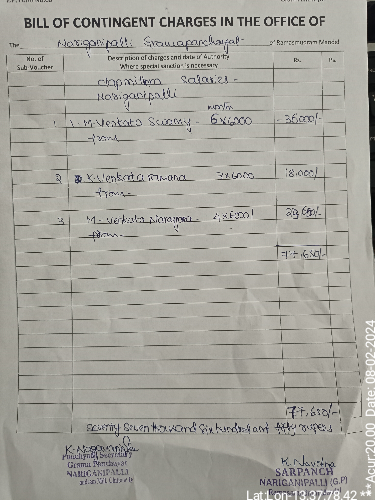 BILL OF CONTINGENT CHARGES IN THE OFFICE OF
The Nariganipalli Gramapanchayat of Ramasmudram Mandal
No. of Sub Voucher Description of charges and date of Authority Where special sanction is necessary Rs. Ps.
Salaries -
Nariganipalli
month
1 1. M. Venkata Swamy - 6x6000 - 36000/-
from
2 K. Venkata Ramana 3x6000 18000/
from
3 M. Venkata Narayana
from
77,650/-
77,650/-
Seventy Seven thousand Six hundred and fifty rupees
Panchayat Secretary
Grama Panchayat
NARIGANIPALLI
K. Naveena
SARPANCH
NARIGANIPALLI (G.P)
Lat Lon-13.37,78.42 ** Acur:20.00 Date, 08-02-2024